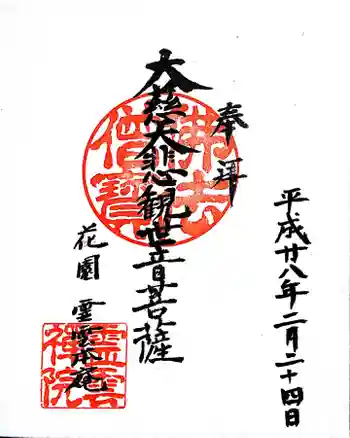 平成廿八年二月二十四日
奉拝
大慈大悲観世音菩薩
佛法
僧寳
花園 霊雲庵
霊雲
禅院